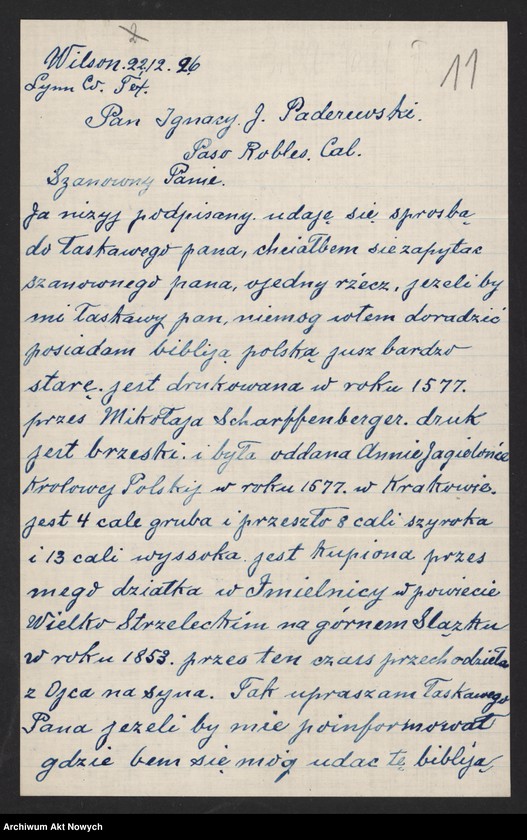 11
Wilson. 22/12. 26
Lynn Co. Tex.
Pan Ignacy. J. Paderewski.
Paso Robles. Cal.
Szanowny Panie.
Ja nizyj podpisany. udaję się sprosbą
do łaskawego pana, chciałbem sie zapytac
szanownego pana, ojedny rzécz, jezeli by
mi łaskawy pan, niemog wtem doradzić
posiadam bibliją polską jusz bardzo
starę. jest drukowana w roku 1577.
przes Mikołaja Scharffenberger. druk
jest brzeski. i była oddana Annie Jagielonce
Krolowej Polskij w roku 1577. w Krakowie.
jest 4 cale gruba i przeszło 8 cali szyroka
i 13 cali wyssoka. jest kupiona przes
mego dziatka w Imielnicy w powiecie
Wielko Strzeleckím na górnem Slązku
w roku 1853. przes ten czass przechodzieła
z Ojca na syna. Tak upraszam łaskawego
Pana jezeli by mie poinformował
gdzie bem się móg udac tę bibliją
Archiwum Akt Nowych